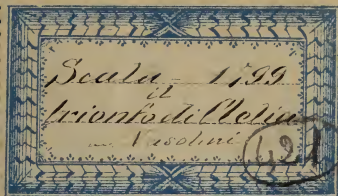 Scala - 1799
il
trionfo di Clelia
Nasolini
421